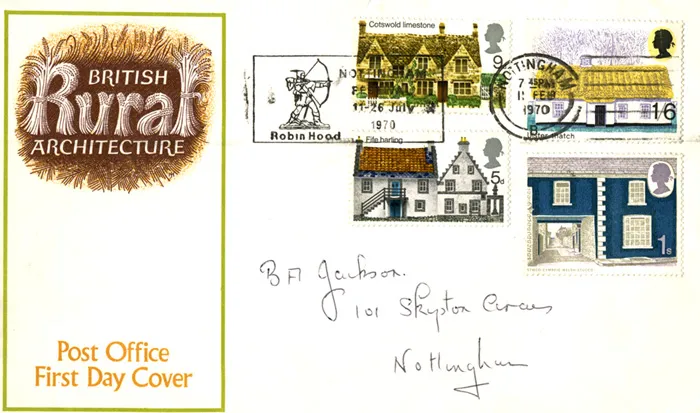 BRITISH
Rural
ARCHITECTURE
Post Office
First Day Cover
Cotswold limestone
9
NOTTINGHAM
FESTIVAL
11-26 July
1970
Robin Hood
NOTTINGHAM
1970
B
1/6
Fife harling
5d
1s
B A Jackson.
101 Skipton Circus
Nottingham